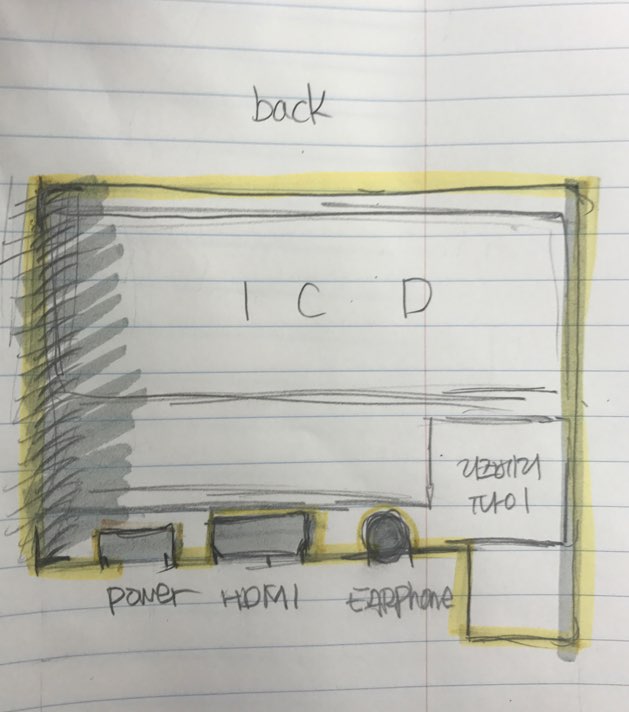 back
l C D
라즈베리
파이
power
HDMI
EARphone